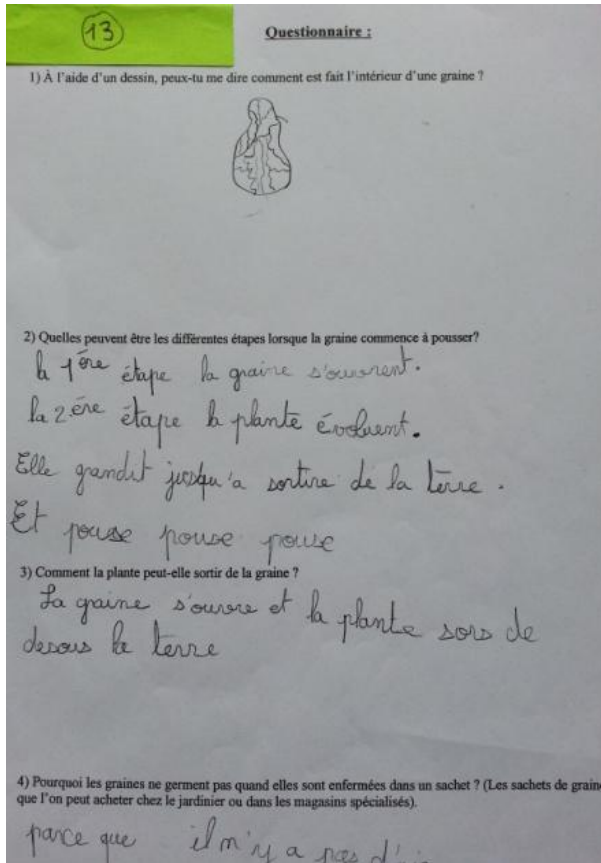 13
Questionnaire :
1) À l'aide d'un dessin, peux-tu me dire comment est fait l'intérieur d'une graine ?
2) Quelles peuvent être les différentes étapes lorsque la graine commence à pousser?
la 1ère étape la graine s'ouvrent.
la 2.ère étape la plante évoluent.
Elle grandit jusqu'a sortire de la terre.
Et pouse pouse pouse
3) Comment la plante peut-elle sortir de la graine ?
La graine s'ouvre et la plante sors de
desous la terre
4) Pourquoi les graines ne germent pas quand elles sont enfermées dans un sachet ? (Les sachets de graine
que l'on peut acheter chez le jardinier ou dans les magasins spécialisés).
parce que il n'y a pas